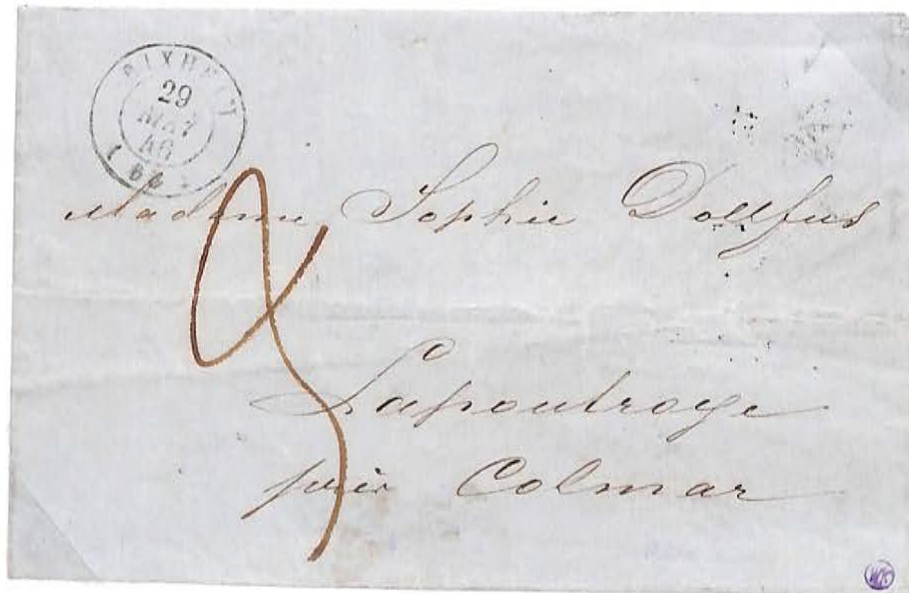 RIXHEIM
29
MAI
46
(66)
Madame Sophie Dollfus
Lapoutroye
près Colmar